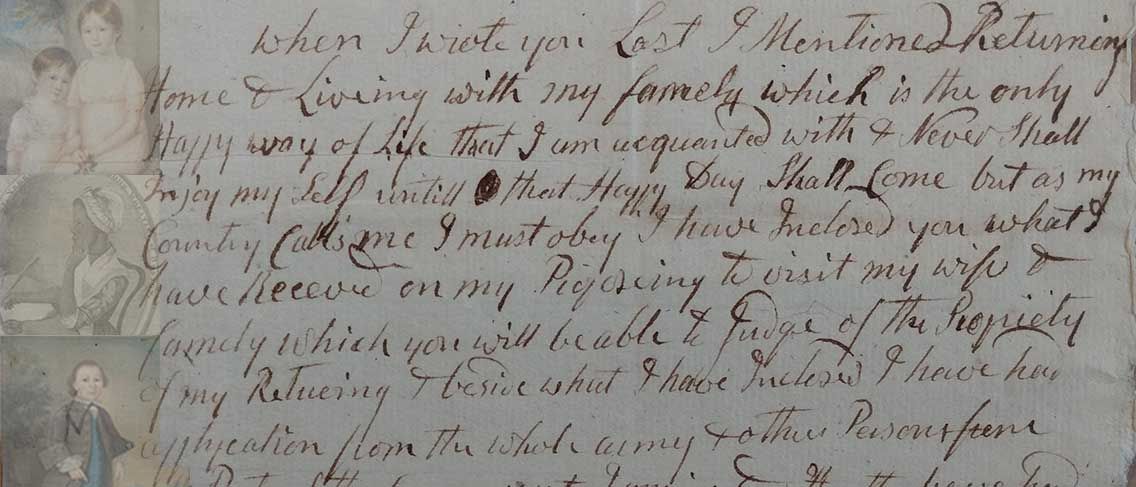 when I wrote you Last I Mentioned Returning
Home & Liveing with my famely which is the only
Happy way of Life that I am acquanted with & Never Shall
Injoy my Self untill that Happy Day Shall Come but as my
Country Calls me I must obey I have Inclosed you what I
have Receved on my Pigoseing to visit my wife &
famely which you will be able to Judge of the Propriety
of my Retureing & beside what I have Inclosed I have had
application from the whole army & other Persons